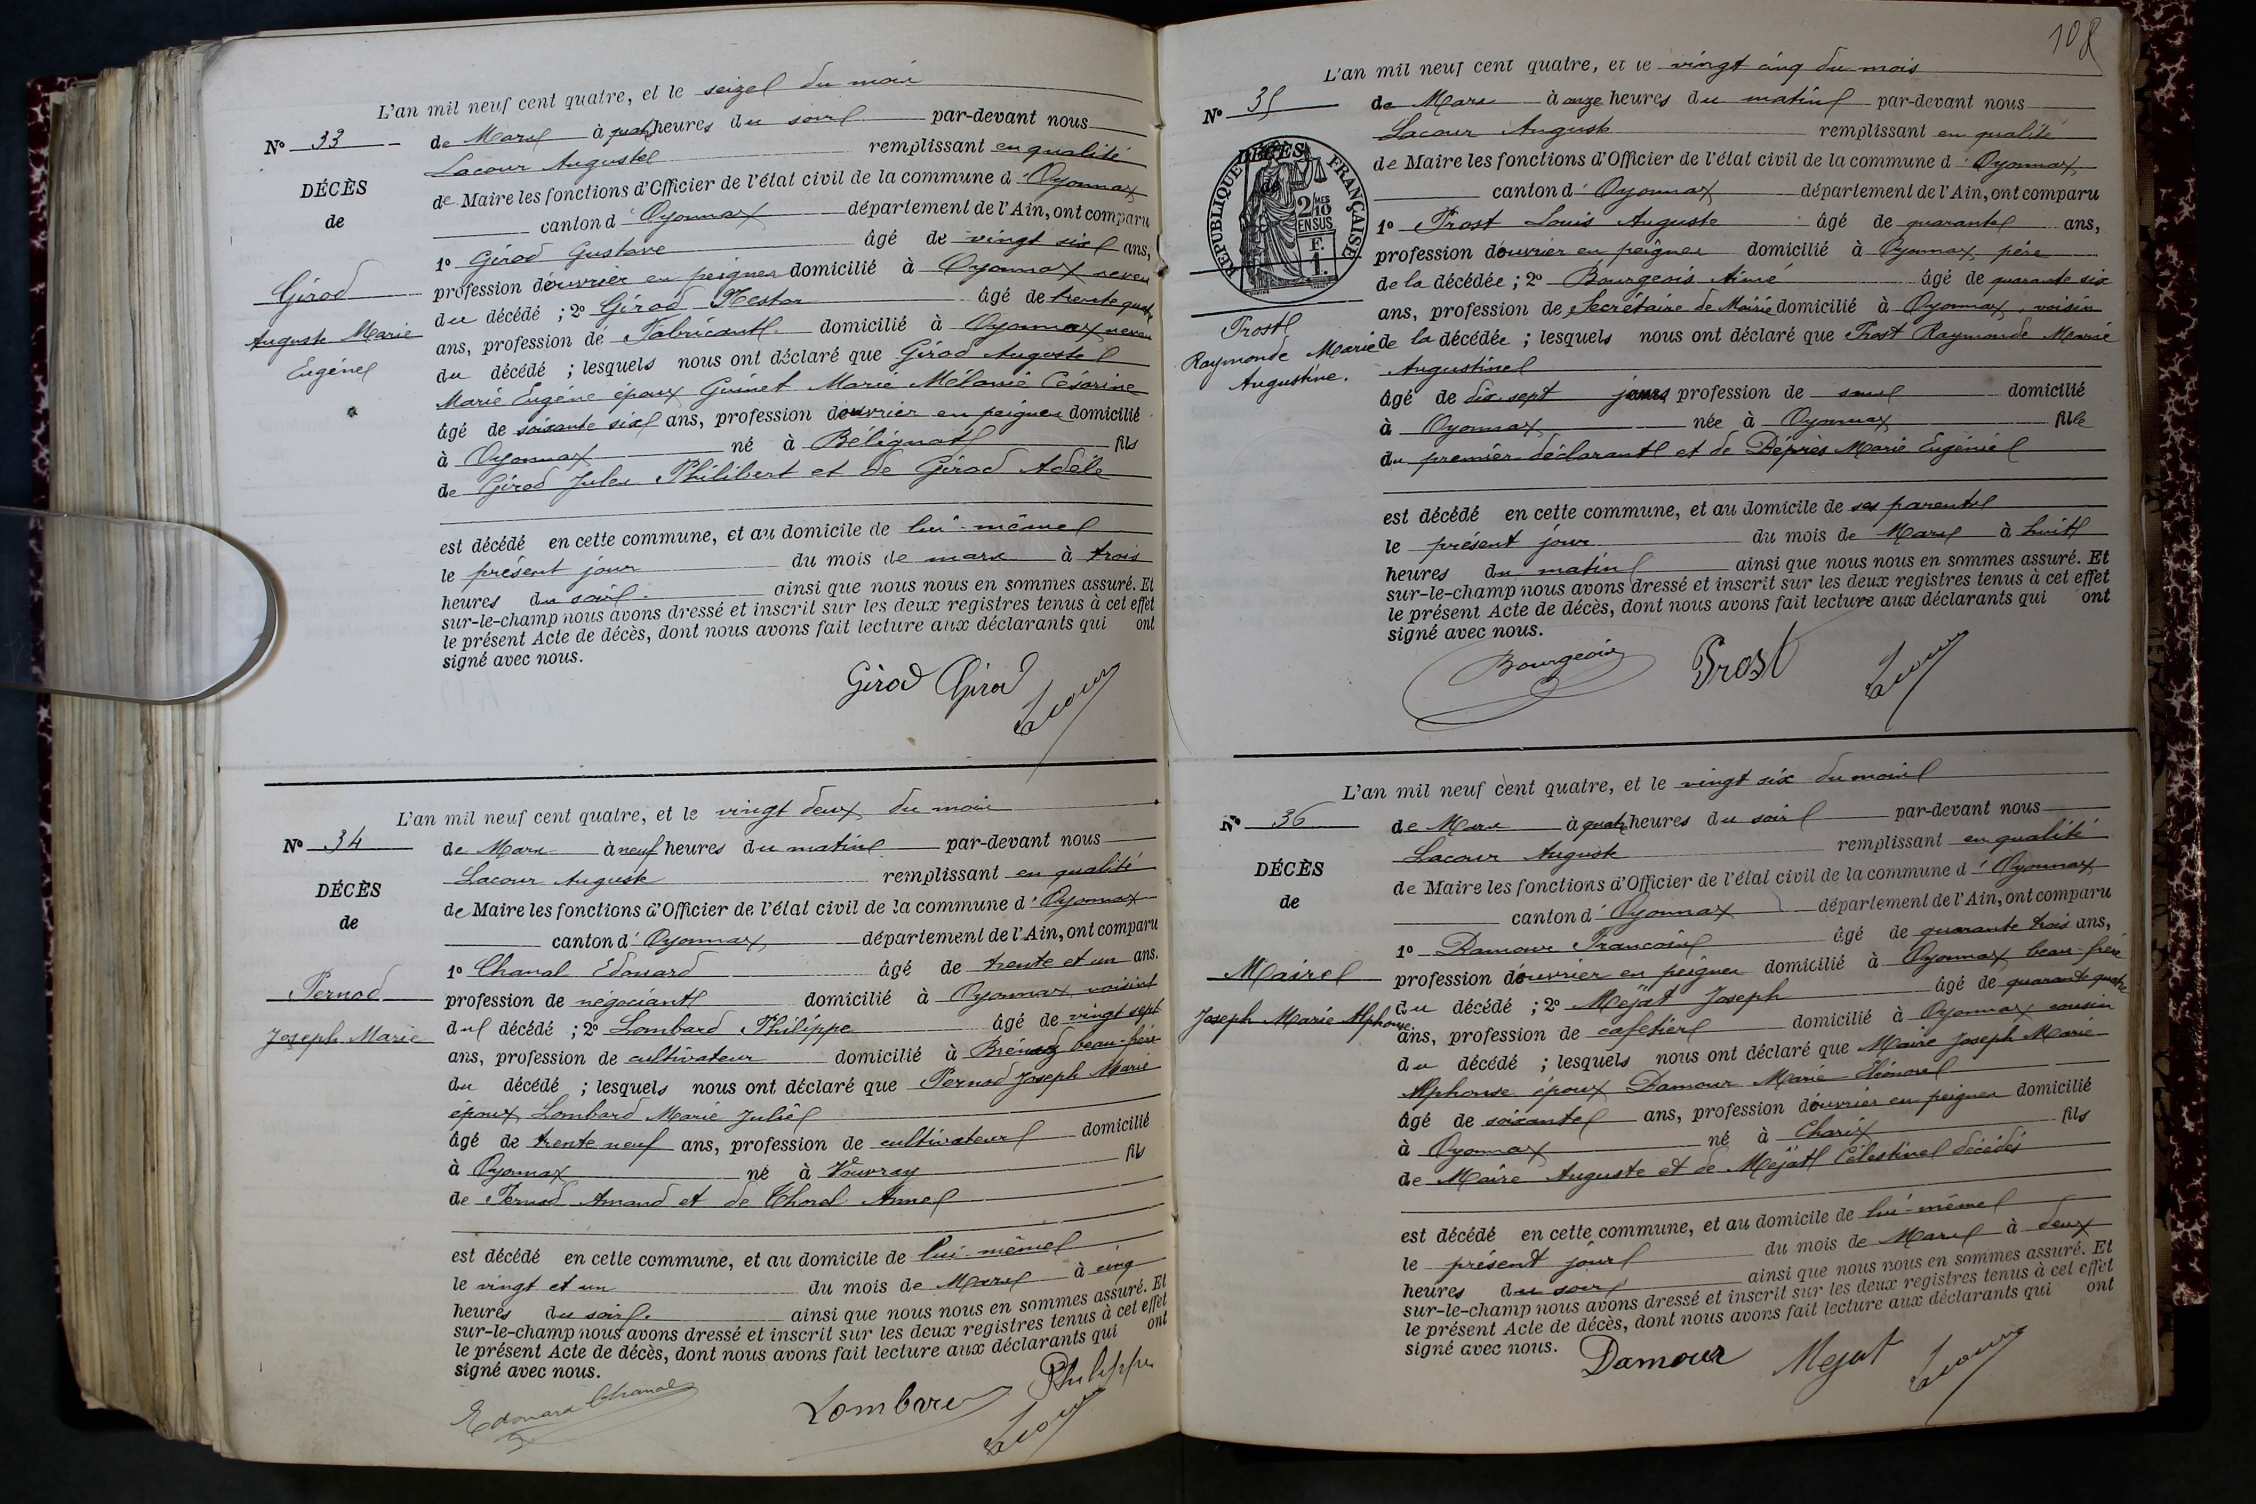 L'an mil neuf cent quatre, et le seize du mois
N° 33
de Mars à quatre heures du soir par-devant nous
Lacour Auguste remplissant en qualité
DÉCÈS
de Maire les fonctions d'Officier de l'état civil de la commune d'Oyonnax
de
canton d'Oyonnax département de l'Ain, ont comparu
1° Girod Gustave âgé de vingt six ans,
Girod
profession d'ouvrier en peignes domicilié à Oyonnax neveu
du décédé ; 2° Girod Nestor âgé de trente quatre
Auguste Marie
ans, profession de Fabricant domicilié à Oyonnax neveu
Eugène
du décédé ; lesquels nous ont déclaré que Girod Auguste
Marie Eugène époux Guinet Marie Mélanie Césarine
âgé de soixante six ans, profession d'ouvrier en peignes domicilié
à Oyonnax né à Bélignat fils
de Girod Jules Philibert et de Girod Adèle
est décédé en cette commune, et au domicile de lui-même
le présent jour du mois de mars à trois
heures du soir. ainsi que nous nous en sommes assuré. Et
sur-le-champ nous avons dressé et inscrit sur les deux registres tenus à cet effet
le présent Acte de décès, dont nous avons fait lecture aux déclarants qui ont
signé avec nous.
Girod Girod Lacour
L'an mil neuf cent quatre, et le vingt deux du mois
N° 34
de Mars à neuf heures du matin par-devant nous
Lacour Auguste remplissant en qualité
DÉCÈS
de Maire les fonctions d'Officier de l'état civil de la commune d'Oyonnax
de
canton d'Oyonnax département de l'Ain, ont comparu
1° Chanal Edouard âgé de trente et un ans.
Pernod
profession de négociant domicilié à Oyonnax voisin
du décédé ; 2° Lombard Philippe âgé de vingt sept
Joseph Marie
ans, profession de cultivateur domicilié à beau-frère
du décédé ; lesquels nous ont déclaré que Pernod Joseph Marie
époux Lombard Marie Julie
âgé de trente neuf ans, profession de cultivateur domicilié
à Oyonnax né à Vouvray fils
de Pernod Amand et de Chorel Anne
est décédé en cette commune, et au domicile de lui-même
le vingt et un du mois de Mars à cinq
heures du soir. ainsi que nous nous en sommes assuré. Et
sur-le-champ nous avons dressé et inscrit sur les deux registres tenus à cet effet
le présent Acte de décès, dont nous avons fait lecture aux déclarants qui ont
signé avec nous.
Edouard Chanal Lombard Philippe Lacour
108
L'an mil neuf cent quatre, et le vingt cinq du mois
N° 35
de Mars à onze heures du matin par-devant nous
Lacour Auguste remplissant en qualité
DÉCÈS
de
RÉPUBLIQUE FRANÇAISE
2/10 MES EN SUS
F. 1.
de Maire les fonctions d'Officier de l'état civil de la commune d'Oyonnax
canton d'Oyonnax département de l'Ain, ont comparu
1° Prost Louis Auguste âgé de quarante ans,
profession d'ouvrier en peignes domicilié à Oyonnax, père
de la décédée ; 2° Bourgeois Aimé âgé de quarante six
ans, profession de Secrétaire de Mairie domicilié à Oyonnax, voisin
Prost
Raymonde Marie
Augustine.
de la décédée ; lesquels nous ont déclaré que Prost Raymonde Marie
Augustine
âgé de dix-sept jours profession de domicilié
à Oyonnax née à Oyonnax fille
du premier déclarant et de Déprès Marie Eugénie
est décédé en cette commune, et au domicile de ses parents
le présent jour du mois de Mars à huit
heures du matin ainsi que nous nous en sommes assuré. Et
sur-le-champ nous avons dressé et inscrit sur les deux registres tenus à cet effet
le présent Acte de décès, dont nous avons fait lecture aux déclarants qui ont
signé avec nous.
Bourgeois Prost Lacour
L'an mil neuf cent quatre, et le vingt six du mois
N° 36
de Mars à quatre heures du soir par-devant nous
Lacour Auguste remplissant en qualité
DÉCÈS
de Maire les fonctions d'Officier de l'état civil de la commune d'Oyonnax
de
canton d'Oyonnax département de l'Ain, ont comparu
1° Damour Francois âgé de quarante trois ans,
Maire
profession d'ouvrier en peignes domicilié à Oyonnax beau-frère
du décédé ; 2° Mejat Joseph âgé de quarante quatre
Joseph Marie Alphonse.
ans, profession de cafetier domicilié à Oyonnax cousin
du décédé ; lesquels nous ont déclaré que Maire Joseph Marie
Alphonse époux Damour Marie Eléonore
âgé de soixante ans, profession d'ouvrier en peignes domicilié
à Oyonnax né à Charix fils
de Maire Auguste et de Mejat Célestine décédés
est décédé en cette commune, et au domicile de lui-même
le présent jour du mois de Mars à deux
heures du soir ainsi que nous nous en sommes assuré. Et
sur-le-champ nous avons dressé et inscrit sur les deux registres tenus à cet effet
le présent Acte de décès, dont nous avons fait lecture aux déclarants qui ont
signé avec nous.
Damour Mejat Lacour